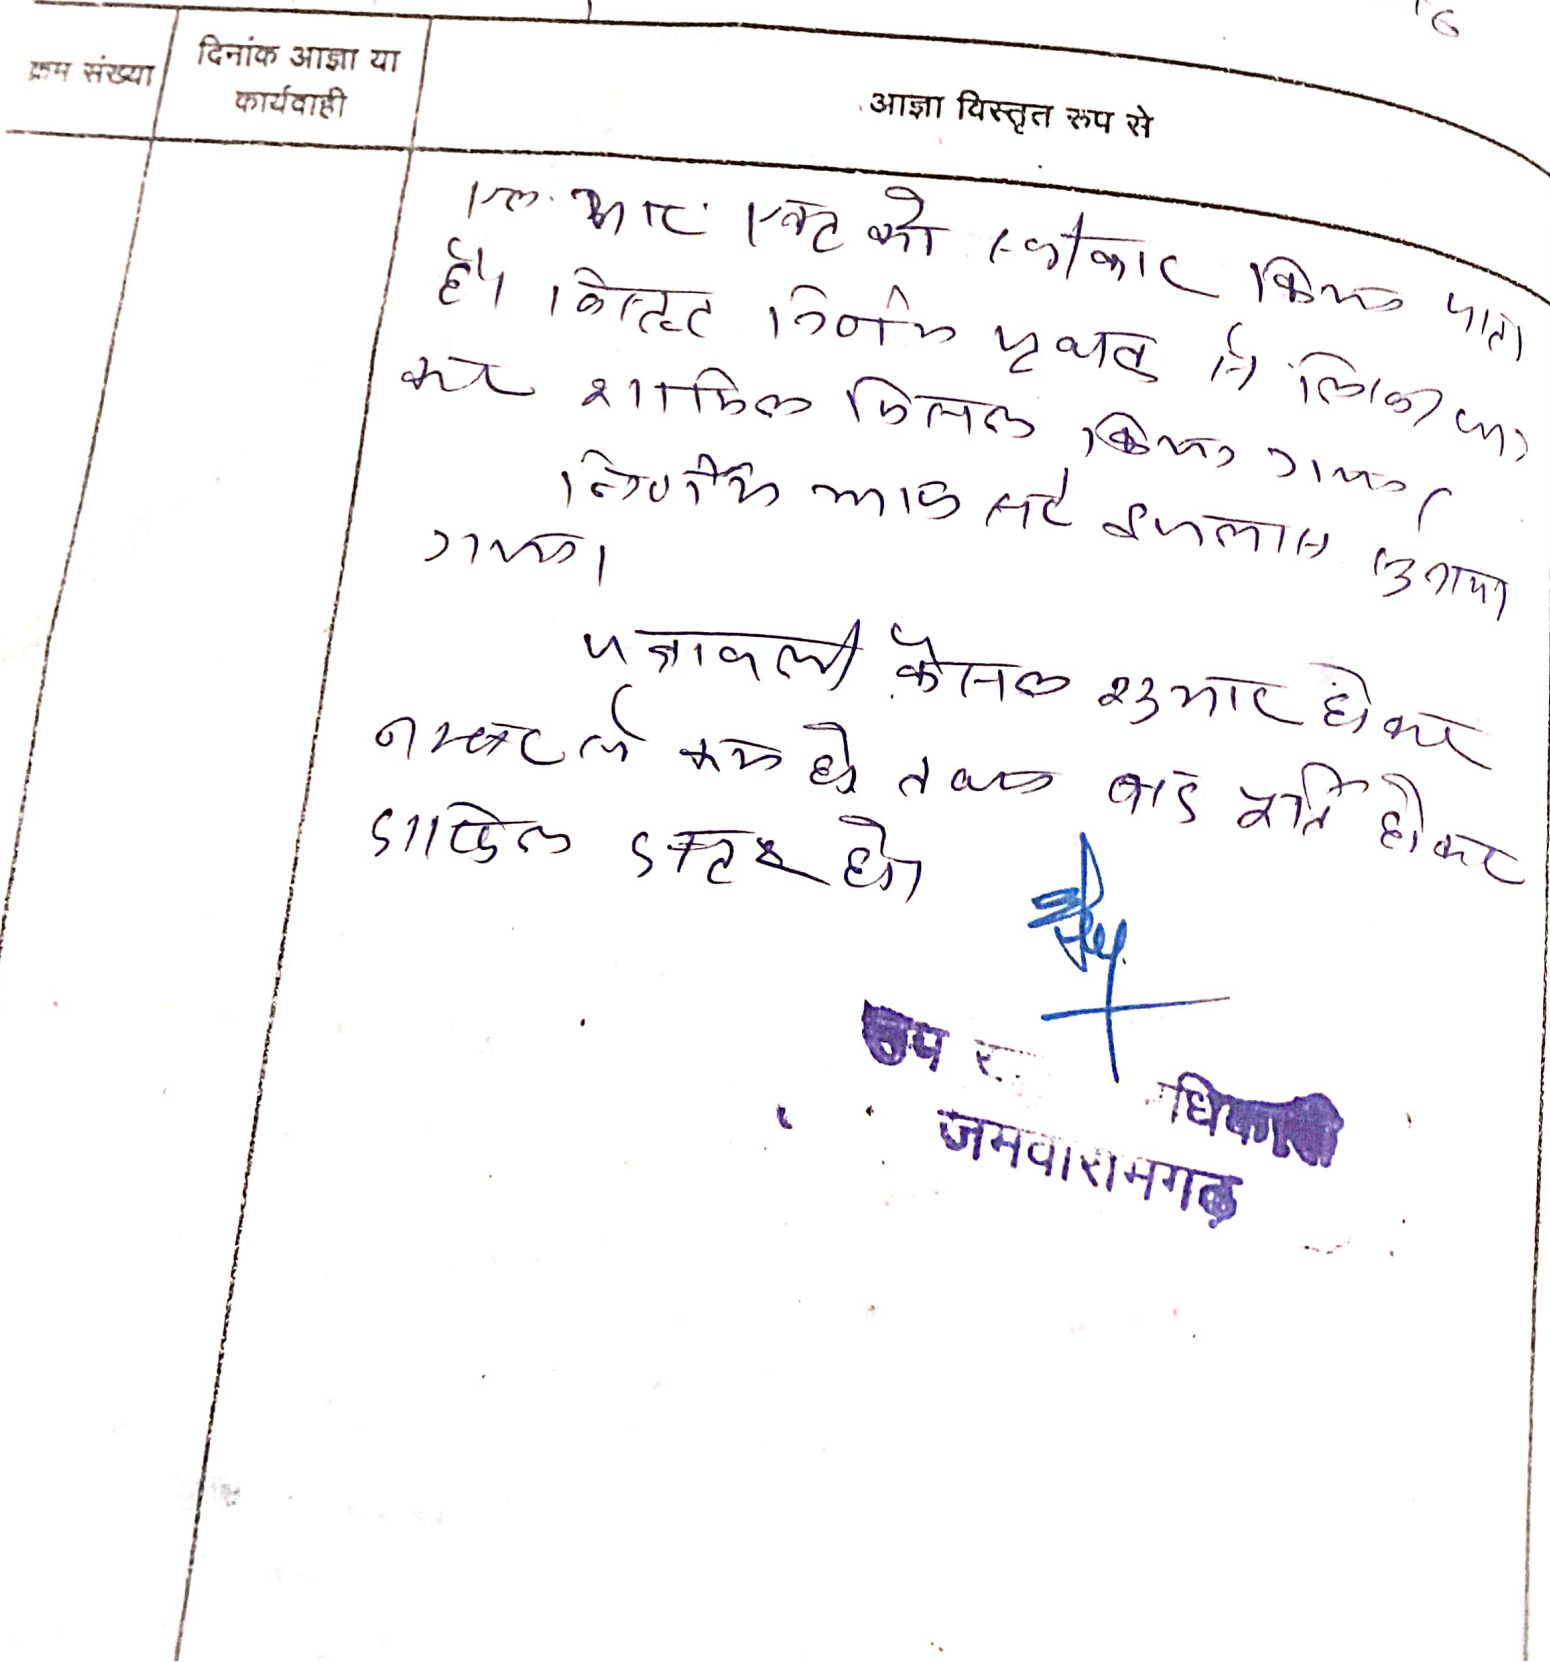 क्रम संख्या
दिनांक आज्ञा या
कार्यवाही
आज्ञा विस्तृत रूप से
एल. आर. एक्ट को स्वीकार किया जाता
है। विस्तृत निर्णय पृथक से लिखा जा
कर शामिल मिसल किया गया।
निर्णय आज सरे इजलास सुनाया
गया।
पत्रावली फैसल शुमार होकर
नम्बर से कम हो तथा बाद पूर्ति होकर
दाखिल दफ्तर हो।
उप
धिकारी
जमवारामगढ़